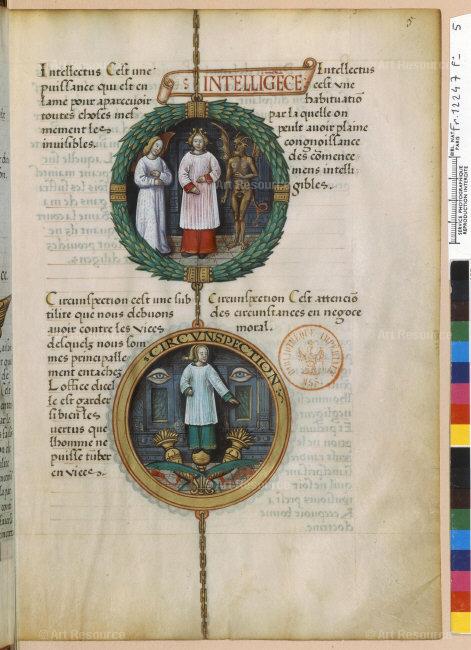 5
INTELLIGE͂CE
Intellectus Cest une
puissance qui est en
lame pour aparcevoir
toutes choses mes
mement les
inuisibles.
Intellectus
cest vne
habituatiõ
par la quelle on
peult auoir plaine
congnoissance
des cõmence
mens intelli
gibles.
Circunspection cest une sub
tilite que nous debuons
auoir contre les vices
desquelz nous som
mes principalle
ment entachez
L office dicel
le est garder
si bien les
vertus que
lhomme ne
puisse tũber
en vices.
Circunspection Cest attenciõ
des circunstances en negoce
moral.
CIRCVNSPECTION
BIBL. NAT.
PARIS
Fr. 12247 f-5
SERVICE PHOTOGRAPHIQUE
REPRODUCTION INTERDITE
© Art Resource
© Art Resource
© Art Resource